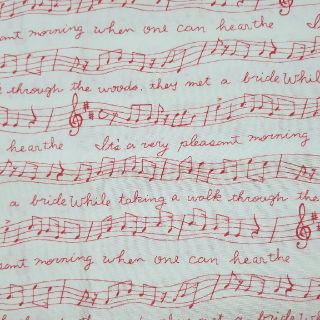 ant morning when one can hearthe I
through the woods, they met a bride While
hearthe It's a very pleasant morning
a bride While taking a walk through the
ant morning when one can hearthe